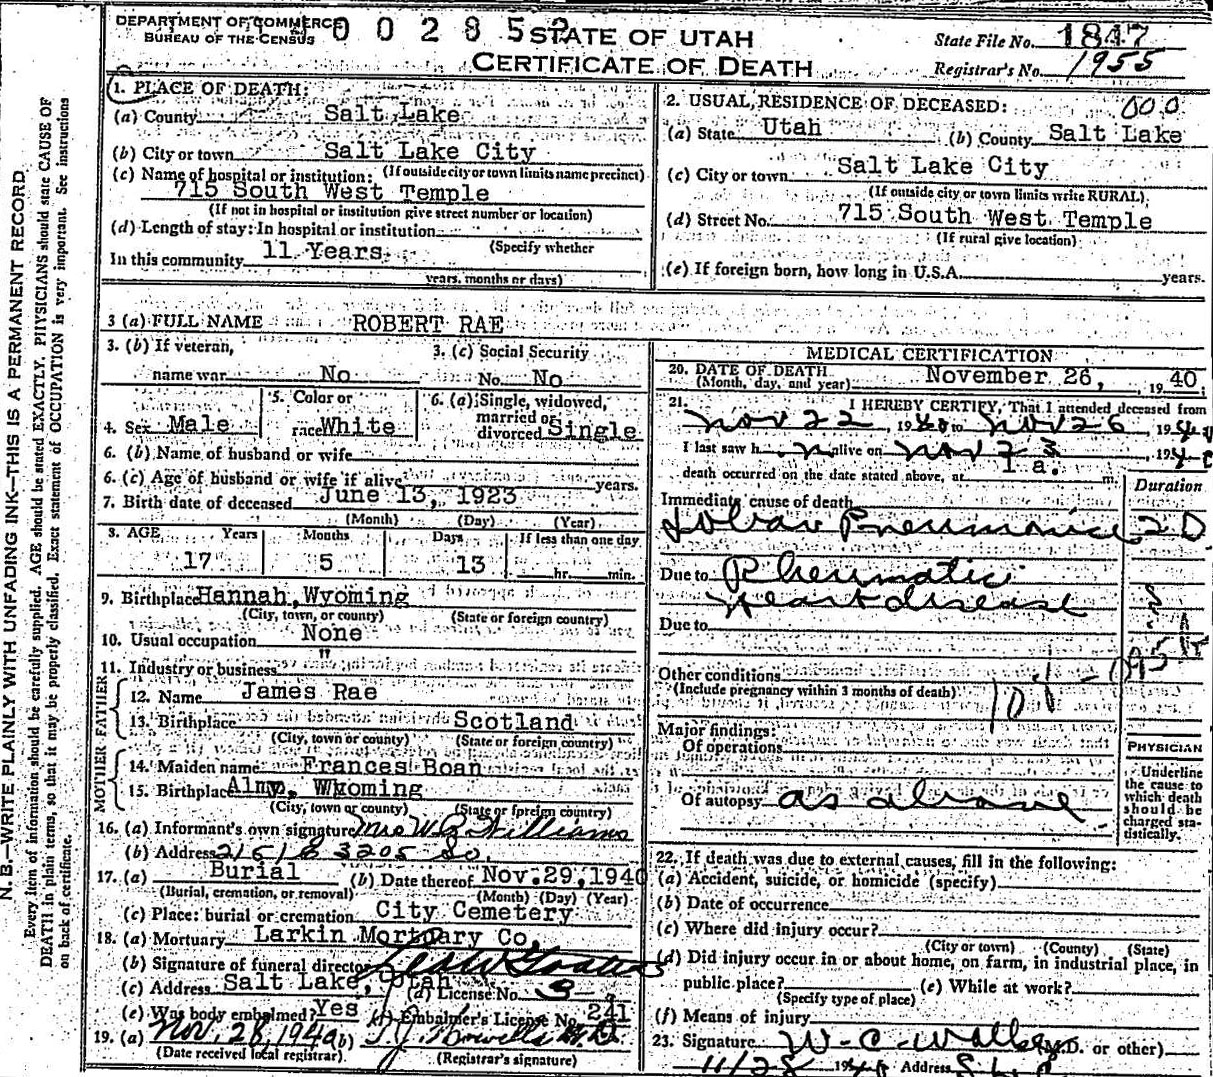 N. B.—WRITE PLAINLY WITH UNFADING INK—THIS IS A PERMANENT RECORD
Every item of information should be carefully supplied. AGE should be stated EXACTLY. PHYSICIANS should state CAUSE OF
DEATH in plain terms, so that it may be properly classified. Exact statement of OCCUPATION is very important. See instructions
on back of certificate.
DEPARTMENT OF COMMERCE
BUREAU OF THE CENSUS
0 0 2 8 5 2
STATE OF UTAH
CERTIFICATE OF DEATH
State File No. 1847
Registrar's No. 1955
1. PLACE OF DEATH:
(a) County Salt Lake
(b) City or town Salt Lake City
(c) Name of hospital or institution: (If outside city or town limits name precinct)
715 South West Temple
(If not in hospital or institution give street number or location)
(d) Length of stay: In hospital or institution
(Specify whether
In this community 11 Years
years, months or days)
2. USUAL RESIDENCE OF DECEASED: 000
(a) State Utah (b) County Salt Lake
(c) City or town Salt Lake City
(If outside city or town limits write RURAL)
(d) Street No. 715 South West Temple
(If rural give location)
(e) If foreign born, how long in U.S.A. years.
3 (a) FULL NAME ROBERT RAE
3. (b) If veteran,
name war No
3. (c) Social Security
No. No
4. Sex Male
5. Color or
race White
6. (a) Single, widowed,
married or
divorced Single
6. (b) Name of husband or wife
6. (c) Age of husband or wife if alive years.
7. Birth date of deceased June 13, 1923
(Month) (Day) (Year)
8. AGE Years Months Days If less than one day
17 5 13 hr. min.
9. Birthplace Hannah, Wyoming
(City, town, or county) (State or foreign country)
10. Usual occupation None
11. Industry or business "
FATHER
12. Name James Rae
13. Birthplace Scotland
(City, town or county) (State or foreign country)
MOTHER
14. Maiden name Frances Boan
15. Birthplace Almy, Wyoming
(City, town or county) (State or foreign country)
16. (a) Informant's own signature Mrs W. Williams
(b) Address 3205 So.
17. (a) Burial (b) Date thereof Nov. 29, 1940
(Burial, cremation, or removal) (Month) (Day) (Year)
(c) Place: burial or cremation City Cemetery
18. (a) Mortuary Larkin Mortuary Co.
(b) Signature of funeral director
(c) Address Salt Lake, Utah (d) License No. 3
(e) Was body embalmed? Yes (f) Embalmer's License No. 241
19. (a) Nov. 28, 1940 (b) T. J. Howells M.D.
(Date received local registrar) (Registrar's signature)
MEDICAL CERTIFICATION
20. DATE OF DEATH
(Month, day, and year) November 26, 1940
21. I HEREBY CERTIFY, That I attended deceased from
Nov 22, 1940 to Nov 26, 1940
I last saw h m alive on Nov 1940
death occurred on the date stated above, at 1 a. m.
Duration
Immediate cause of death
Lobar Pneumonia 2 D
Due to Rheumatic
Heart disease
Due to
Other conditions
(Include pregnancy within 3 months of death)
Major findings:
Of operations
Of autopsy as above
PHYSICIAN
Underline
the cause to
which death
should be
charged sta-
tistically.
22. If death was due to external causes, fill in the following:
(a) Accident, suicide, or homicide (specify)
(b) Date of occurrence
(c) Where did injury occur?
(City or town) (County) (State)
(d) Did injury occur in or about home, on farm, in industrial place, in
public place? (e) While at work?
(Specify type of place)
(f) Means of injury
23. Signature W. C. Walker (M.D. or other)
11/28 1940 Address S L C